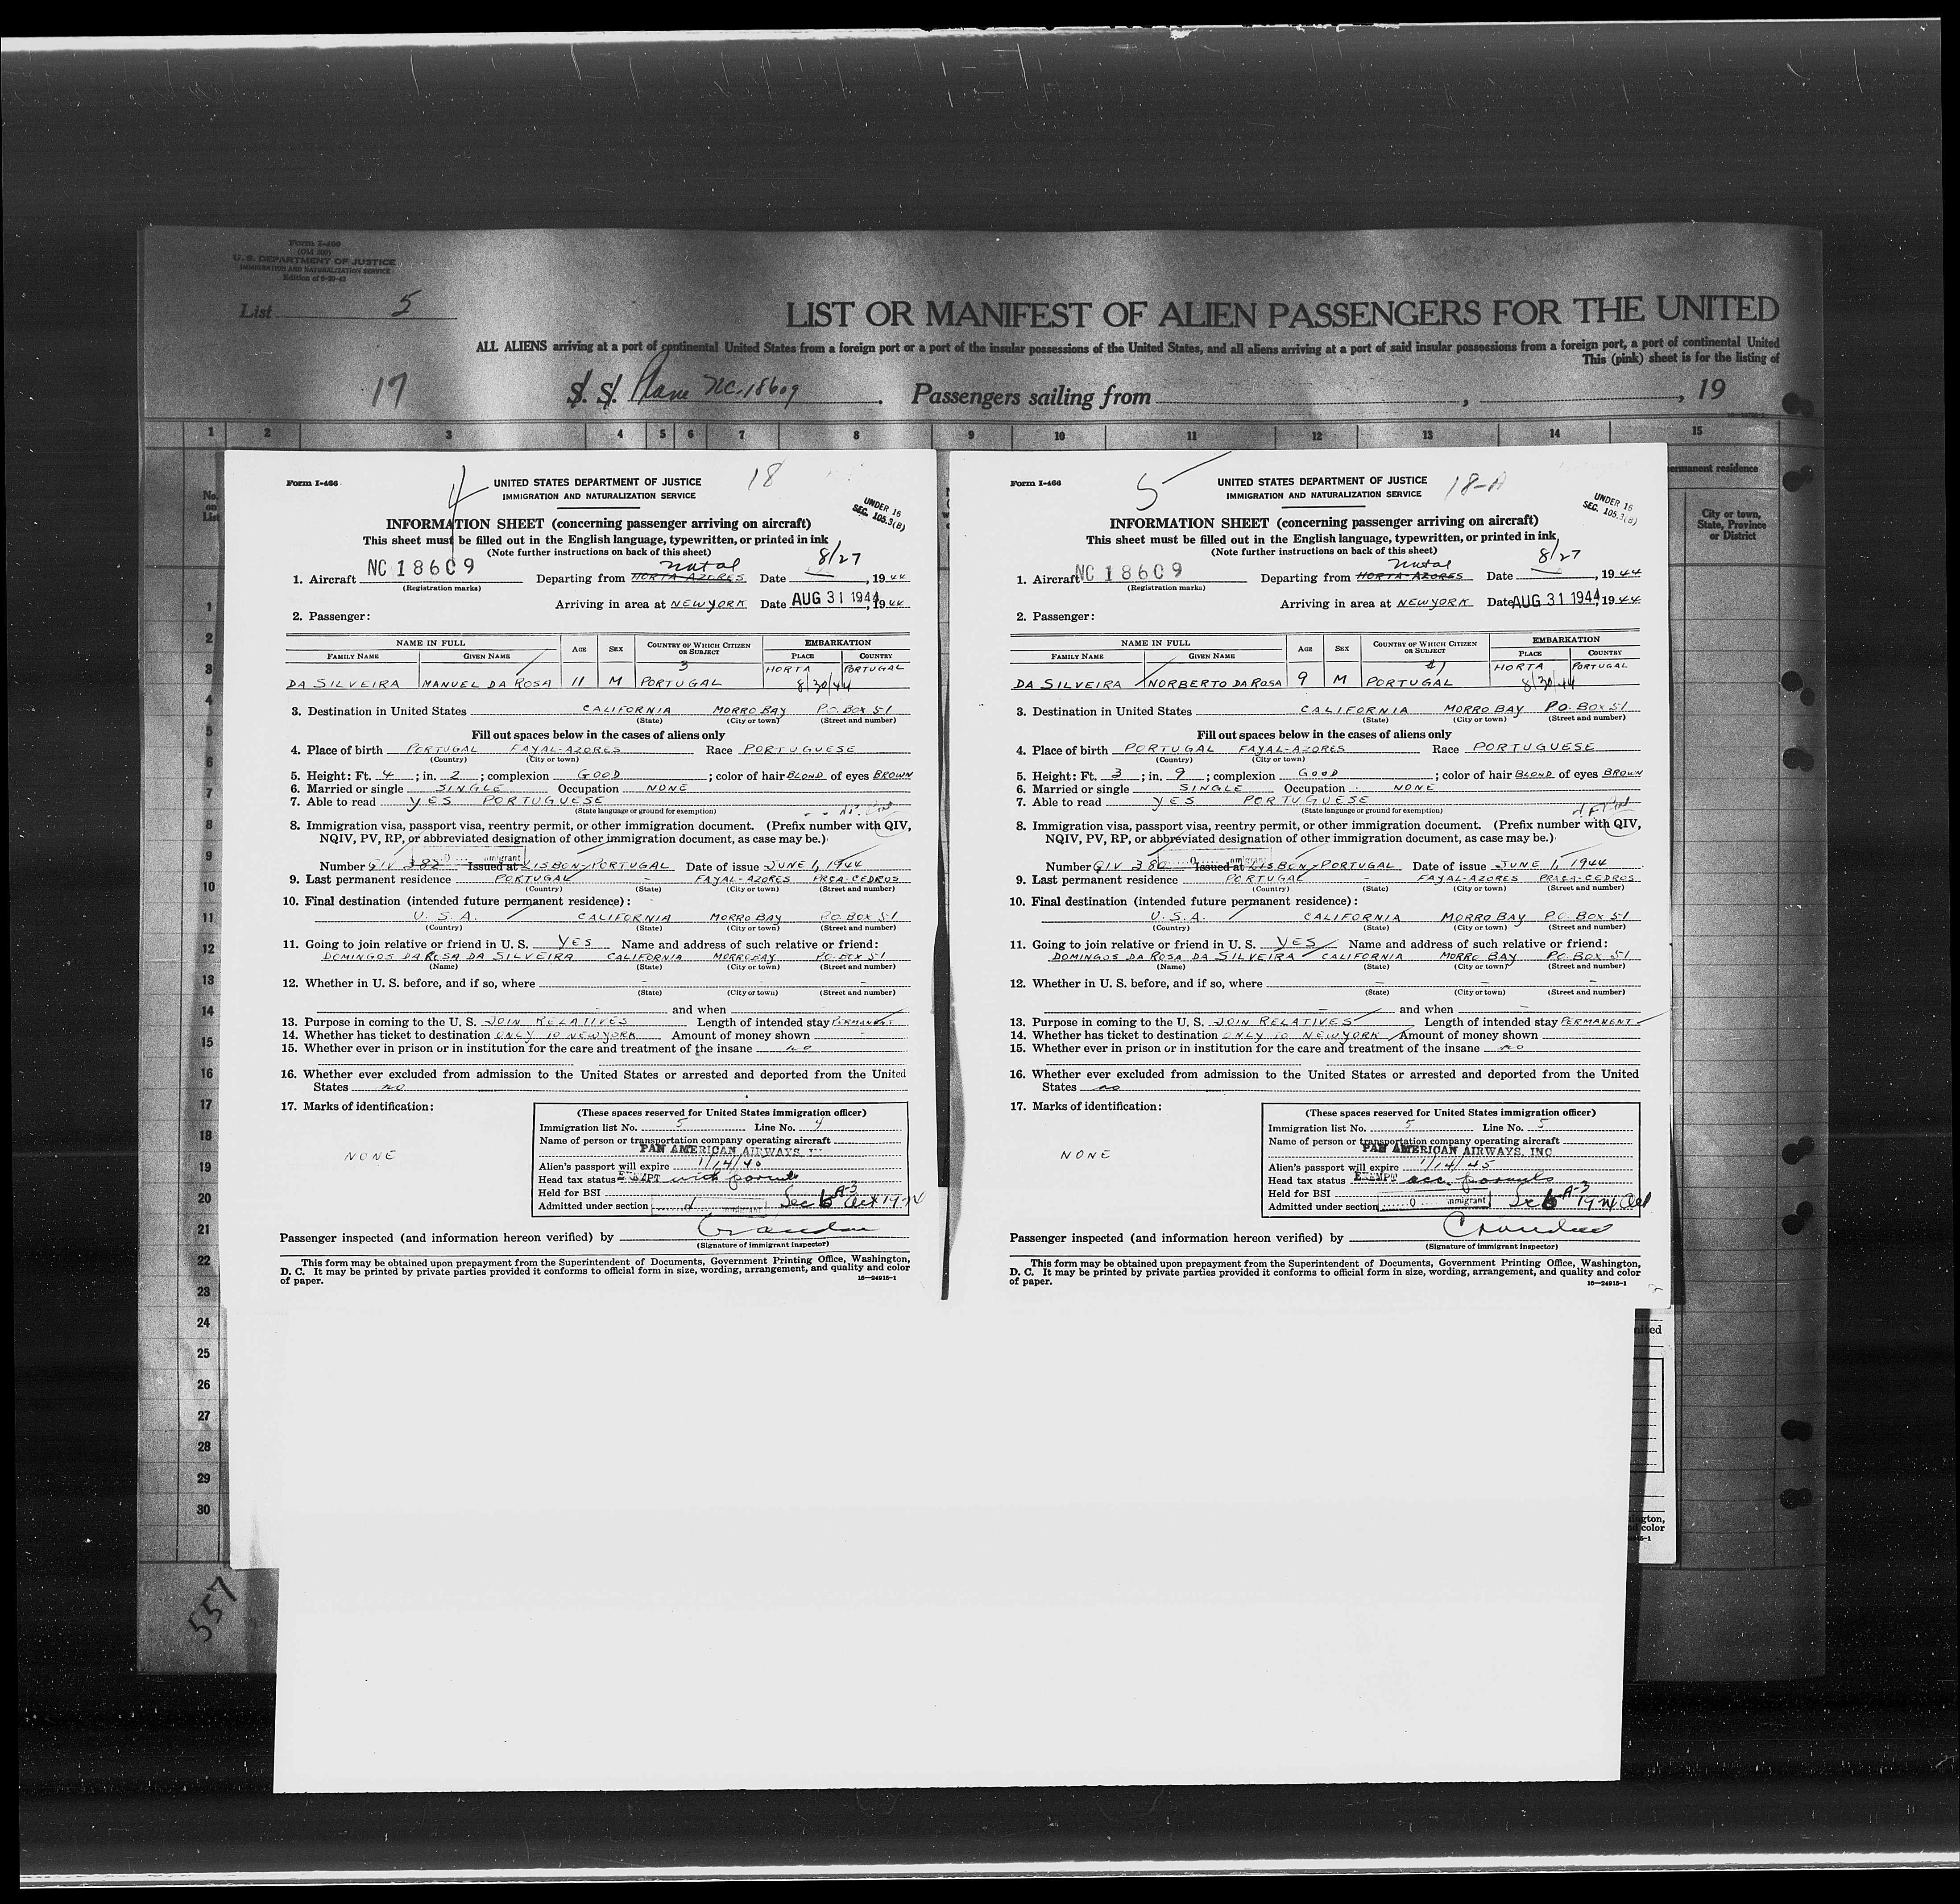 Form I-466
(Old 500)
U. S. DEPARTMENT OF JUSTICE
IMMIGRATION AND NATURALIZATION SERVICE
List 5
LIST OR MANIFEST OF ALIEN PASSENGERS FOR THE UNITED
ALL ALIENS arriving at a port of continental United States from a foreign port or a port of the insular possessions of the United States, and all aliens arriving at a port of said insular possessions from a foreign port, a port of continental United
This (pink) sheet is for the listing of
17 S. S. Plane NC.18609 . Passengers sailing from , , 19
1 2 3 4 5 6 7 8 9 10 11 12 13 14 15
No. on List
permanent residence
City or town, State, Province or District
1
2
3
4
5
6
7
8
9
10
11
12
13
14
15
16
17
18
19
20
21
22
23
24
25
26
27
28
29
30
557
Form I-466
4
UNITED STATES DEPARTMENT OF JUSTICE
18
IMMIGRATION AND NATURALIZATION SERVICE
UNDER 16
SEC. 105.3(B)
INFORMATION SHEET (concerning passenger arriving on aircraft)
This sheet must be filled out in the English language, typewritten, or printed in ink
(Note further instructions on back of this sheet)
1. Aircraft NC 18609 Departing from HORTA-AZORES Natal Date 8/27, 1944
(Registration marks)
Arriving in area at NEW YORK Date AUG 31 1944, 1944
2. Passenger:
NAME IN FULL AGE SEX COUNTRY OF WHICH CITIZEN OR SUBJECT EMBARKATION
FAMILY NAME GIVEN NAME PLACE COUNTRY
3 HORTA PORTUGAL
DA SILVEIRA MANUEL DA ROSA 11 M PORTUGAL 8/30/44
3. Destination in United States CALIFORNIA MORRO BAY P.O. BOX 51
(State) (City or town) (Street and number)
Fill out spaces below in the cases of aliens only
4. Place of birth PORTUGAL FAYAL-AZORES Race PORTUGUESE
(Country) (City or town)
5. Height: Ft. 4; in. 2; complexion GOOD; color of hair BLOND of eyes BROWN
6. Married or single SINGLE Occupation NONE
7. Able to read YES PORTUGUESE
(State language or ground for exemption)
8. Immigration visa, passport visa, reentry permit, or other immigration document. (Prefix number with QIV,
NQIV, PV, RP, or abbreviated designation of other immigration document, as case may be.)
Number QIV 382 Issued at LISBON-PORTUGAL Date of issue JUNE 1, 1944
9. Last permanent residence PORTUGAL - FAYAL-AZORES PRSA-CEDROS
(Country) (State) (City or town) (Street and number)
10. Final destination (intended future permanent residence):
U. S. A. CALIFORNIA MORRO BAY P.O. BOX 51
(Country) (State) (City or town) (Street and number)
11. Going to join relative or friend in U. S. YES Name and address of such relative or friend:
DOMINGOS DA ROSA DA SILVEIRA CALIFORNIA MORRO BAY P.O. BOX 51
(Name) (State) (City or town) (Street and number)
12. Whether in U. S. before, and if so, where - - -
(State) (City or town) (Street and number)
and when
13. Purpose in coming to the U. S. JOIN RELATIVES Length of intended stay PERMANENT
14. Whether has ticket to destination ONLY TO NEW YORK Amount of money shown -
15. Whether ever in prison or in institution for the care and treatment of the insane no
16. Whether ever excluded from admission to the United States or arrested and deported from the United
States no
17. Marks of identification:
NONE
(These spaces reserved for United States immigration officer)
Immigration list No. 5 Line No. 4
Name of person or transportation company operating aircraft
PAN AMERICAN AIRWAYS,
Alien's passport will expire
Head tax status EXEMPT with parents
Held for BSI
Admitted under section Sec 6 A-3 Act 1924
Passenger inspected (and information hereon verified) by
(Signature of immigrant inspector)
This form may be obtained upon prepayment from the Superintendent of Documents, Government Printing Office, Washington,
D. C. It may be printed by private parties provided it conforms to official form in size, wording, arrangement, and quality and color
of paper. 16—24915-1
Form I-466
5
UNITED STATES DEPARTMENT OF JUSTICE
18-A
IMMIGRATION AND NATURALIZATION SERVICE
UNDER 16
SEC. 105.3(B)
INFORMATION SHEET (concerning passenger arriving on aircraft)
This sheet must be filled out in the English language, typewritten, or printed in ink
(Note further instructions on back of this sheet)
1. Aircraft NC 18609 Departing from HORTA-AZORES Natal Date 8/27, 1944
(Registration marks)
Arriving in area at NEW YORK Date AUG 31 1944, 1944
2. Passenger:
NAME IN FULL AGE SEX COUNTRY OF WHICH CITIZEN OR SUBJECT EMBARKATION
FAMILY NAME GIVEN NAME PLACE COUNTRY
HORTA PORTUGAL
DA SILVEIRA NORBERTO DA ROSA 9 M PORTUGAL 8/30/44
3. Destination in United States CALIFORNIA MORRO BAY P.O. BOX 51
(State) (City or town) (Street and number)
Fill out spaces below in the cases of aliens only
4. Place of birth PORTUGAL FAYAL-AZORES Race PORTUGUESE
(Country) (City or town)
5. Height: Ft. 3; in. 9; complexion GOOD; color of hair BLOND of eyes BROWN
6. Married or single SINGLE Occupation NONE
7. Able to read YES PORTUGUESE
(State language or ground for exemption)
8. Immigration visa, passport visa, reentry permit, or other immigration document. (Prefix number with QIV,
NQIV, PV, RP, or abbreviated designation of other immigration document, as case may be.)
Number QIV 380 Issued at LISBON-PORTUGAL Date of issue JUNE 1, 1944
9. Last permanent residence PORTUGAL - FAYAL-AZORES PRASA-CEDROS
(Country) (State) (City or town) (Street and number)
10. Final destination (intended future permanent residence):
U. S. A. CALIFORNIA MORRO BAY P.O. BOX 51
(Country) (State) (City or town) (Street and number)
11. Going to join relative or friend in U. S. YES Name and address of such relative or friend:
DOMINGOS DA ROSA DA SILVEIRA CALIFORNIA MORRO BAY P.O. BOX 51
(Name) (State) (City or town) (Street and number)
12. Whether in U. S. before, and if so, where - - -
(State) (City or town) (Street and number)
and when -
13. Purpose in coming to the U. S. JOIN RELATIVES Length of intended stay PERMANENT
14. Whether has ticket to destination ONLY TO NEW YORK Amount of money shown
15. Whether ever in prison or in institution for the care and treatment of the insane no
16. Whether ever excluded from admission to the United States or arrested and deported from the United
States no
17. Marks of identification:
NONE
(These spaces reserved for United States immigration officer)
Immigration list No. 5 Line No. 5
Name of person or transportation company operating aircraft
PAN AMERICAN AIRWAYS, INC.
Alien's passport will expire 1/14/45
Head tax status EXEMPT acc. parents
Held for BSI
Admitted under section immigrant Sec 6 A-3 1924 Act
Passenger inspected (and information hereon verified) by
(Signature of immigrant inspector)
This form may be obtained upon prepayment from the Superintendent of Documents, Government Printing Office, Washington,
D. C. It may be printed by private parties provided it conforms to official form in size, wording, arrangement, and quality and color
of paper. 16—24915-1